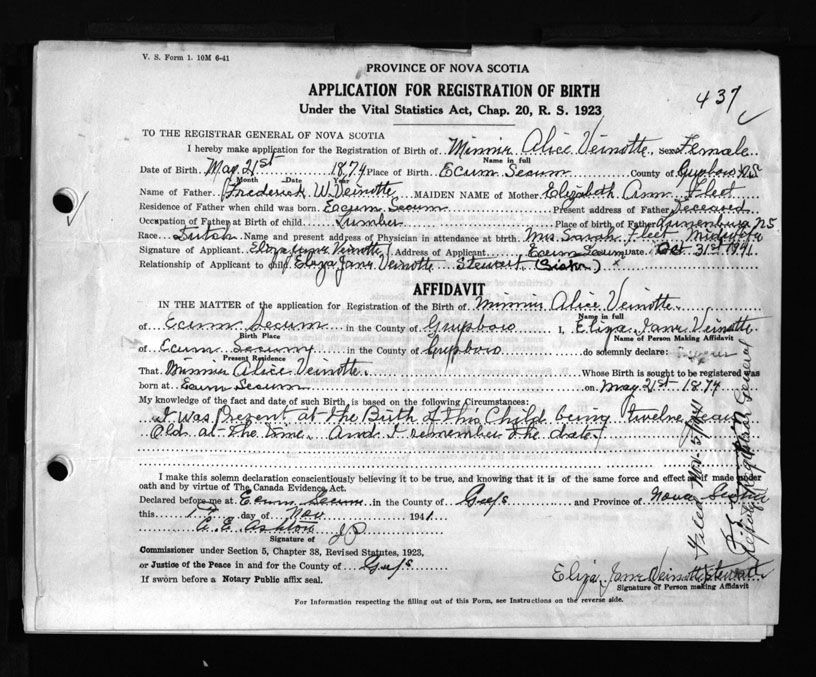 V. S. Form 1. 10M 6-41
PROVINCE OF NOVA SCOTIA
APPLICATION FOR REGISTRATION OF BIRTH
437
Under the Vital Statistics Act, Chap. 20, R. S. 1923
TO THE REGISTRAR GENERAL OF NOVA SCOTIA
I hereby make application for the Registration of Birth of Minnie Alice Veinotte, sex Female
Name in full
Date of Birth May 21st 1874 Place of Birth Ecum Secum County of Guysboro NS
Month Date Year
Name of Father Frederick W Veinotte MAIDEN NAME of Mother Elizabeth Ann Fleet
Residence of Father when child was born Ecum Secum Present address of Father Deceased
Occupation of Father at Birth of child Lumber Place of birth of Father Lunenburg NS
Race Dutch Name and present address of Physician in attendance at birth Mrs Sarah Fleet Midwife
Signature of Applicant Eliza Jane Veinotte Address of Applicant Ecum Secum Date Oct 31st 1941
Relationship of Applicant to child Eliza Jane Veinotte Stewart (Sister)
AFFIDAVIT
IN THE MATTER of the application for Registration of the Birth of Minnie Alice Veinotte
Name in full
of Ecum Secum in the County of Guysboro I, Eliza Jane Veinotte
Birth Place Name of Person Making Affidavit
of Ecum Secum in the County of Guysboro do solemnly declare:
Present Residence
That Minnie Alice Veinotte Whose Birth is sought to be registered was
born at Ecum Secum on May 21st 1874
My knowledge of the fact and date of such Birth, is based on the following Circumstances:
I was Present at the Birth of this Child being twelve years
Old at the time. And I remember the date
I make this solemn declaration conscientiously believing it to be true, and knowing that it is of the same force and effect as if made under
oath and by virtue of The Canada Evidence Act.
Declared before me at Ecum Secum in the County of Guys and Province of Nova Scotia
this day of Nov 1941.
C. E. Ashton J P
Signature of
Commissioner under Section 5, Chapter 38, Revised Statutes, 1923,
or Justice of the Peace in and for the County of Guys
Eliza Jane Veinotte Stewart
If sworn before a Notary Public affix seal.
Signature of Person making Affidavit
For Information respecting the filling out of this Form, see Instructions on the reverse side.
Filed Nov. 5/1941
Deputy Registrar General